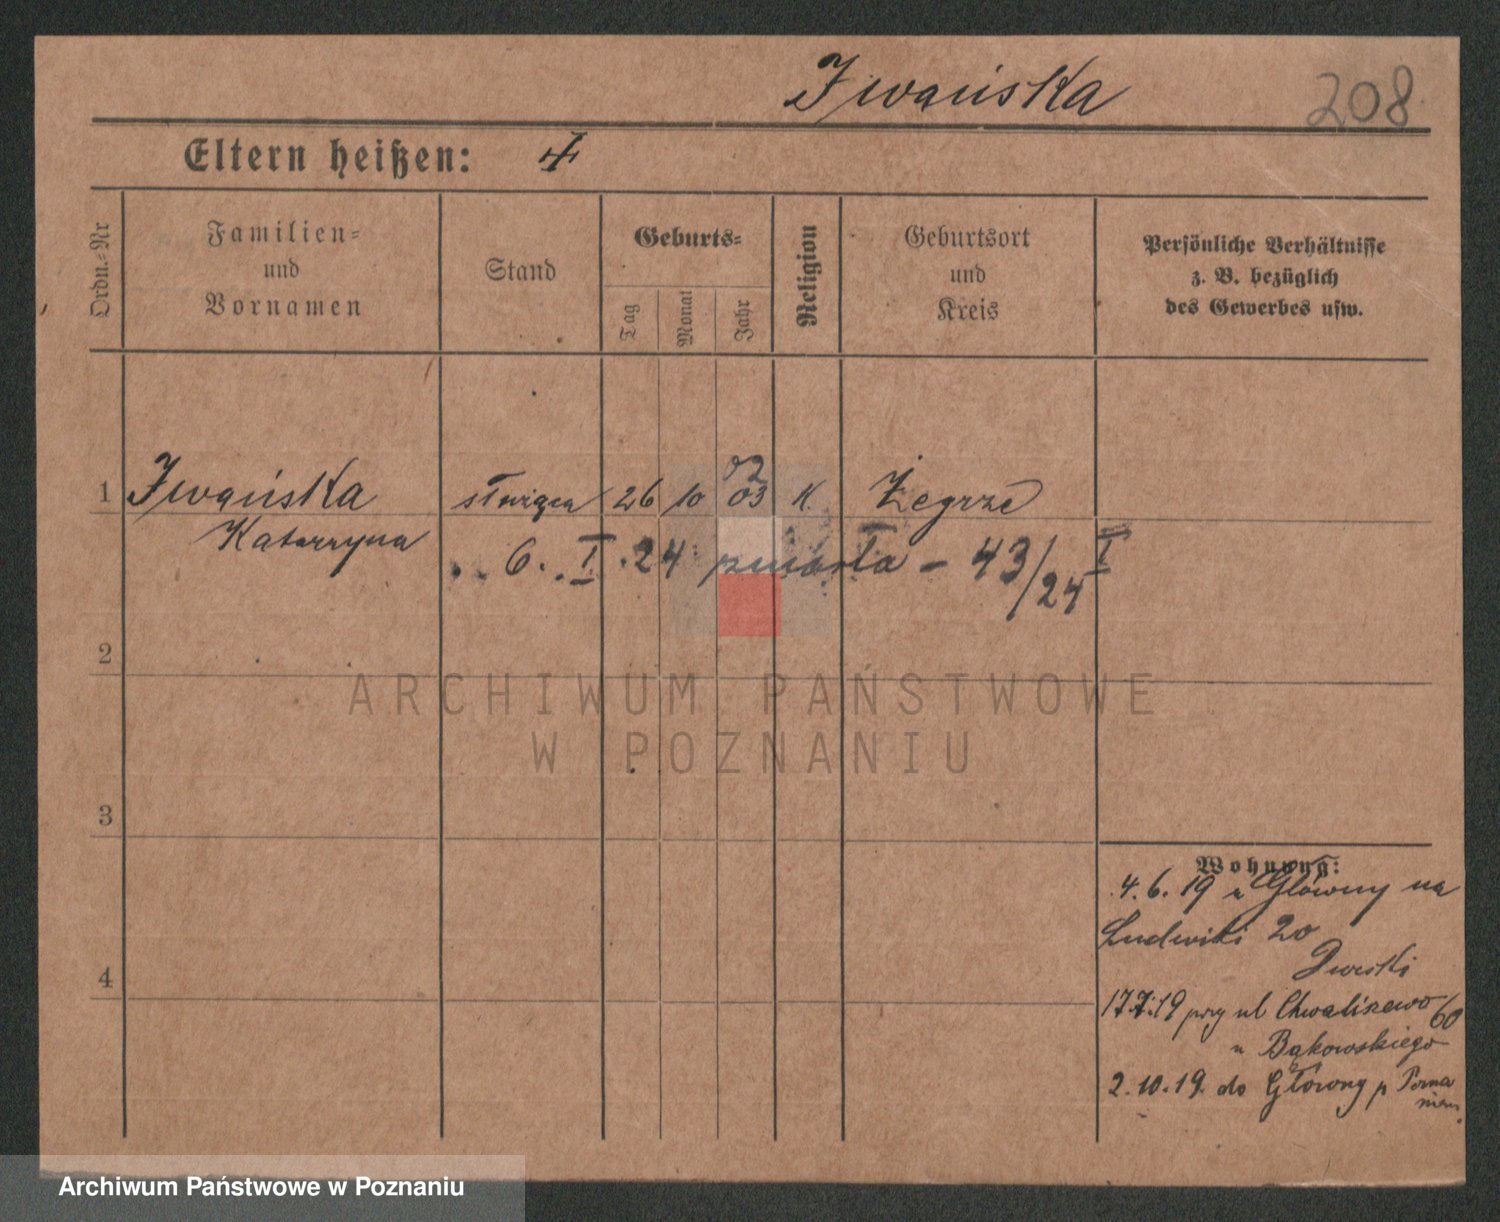 Iwańska 208
Eltern heißen:
Ordn.-Nr
Familien-
und
Vornamen
Stand
Geburts-
Tag
Monat
Jahr
Religion
Geburtsort
und
Kreis
Persönliche Verhältnisse
z. B. bezüglich
des Gewerbes usw.
02
1 Iwańska służąca 26 10 03 K. Żegrze
Katarzyna
6. I. 24 zmarła - 43/24 I
2
3
4
Wohnung:
4.6.19 z Główny na
Ludwiki 20
17.7.19 przy ul Chwaliszewo 60
u Bąkowskiego
2.10.19. do Główny p
ARCHIWUM PAŃSTWOWE
W POZNANIU
Archiwum Państwowe w Poznaniu